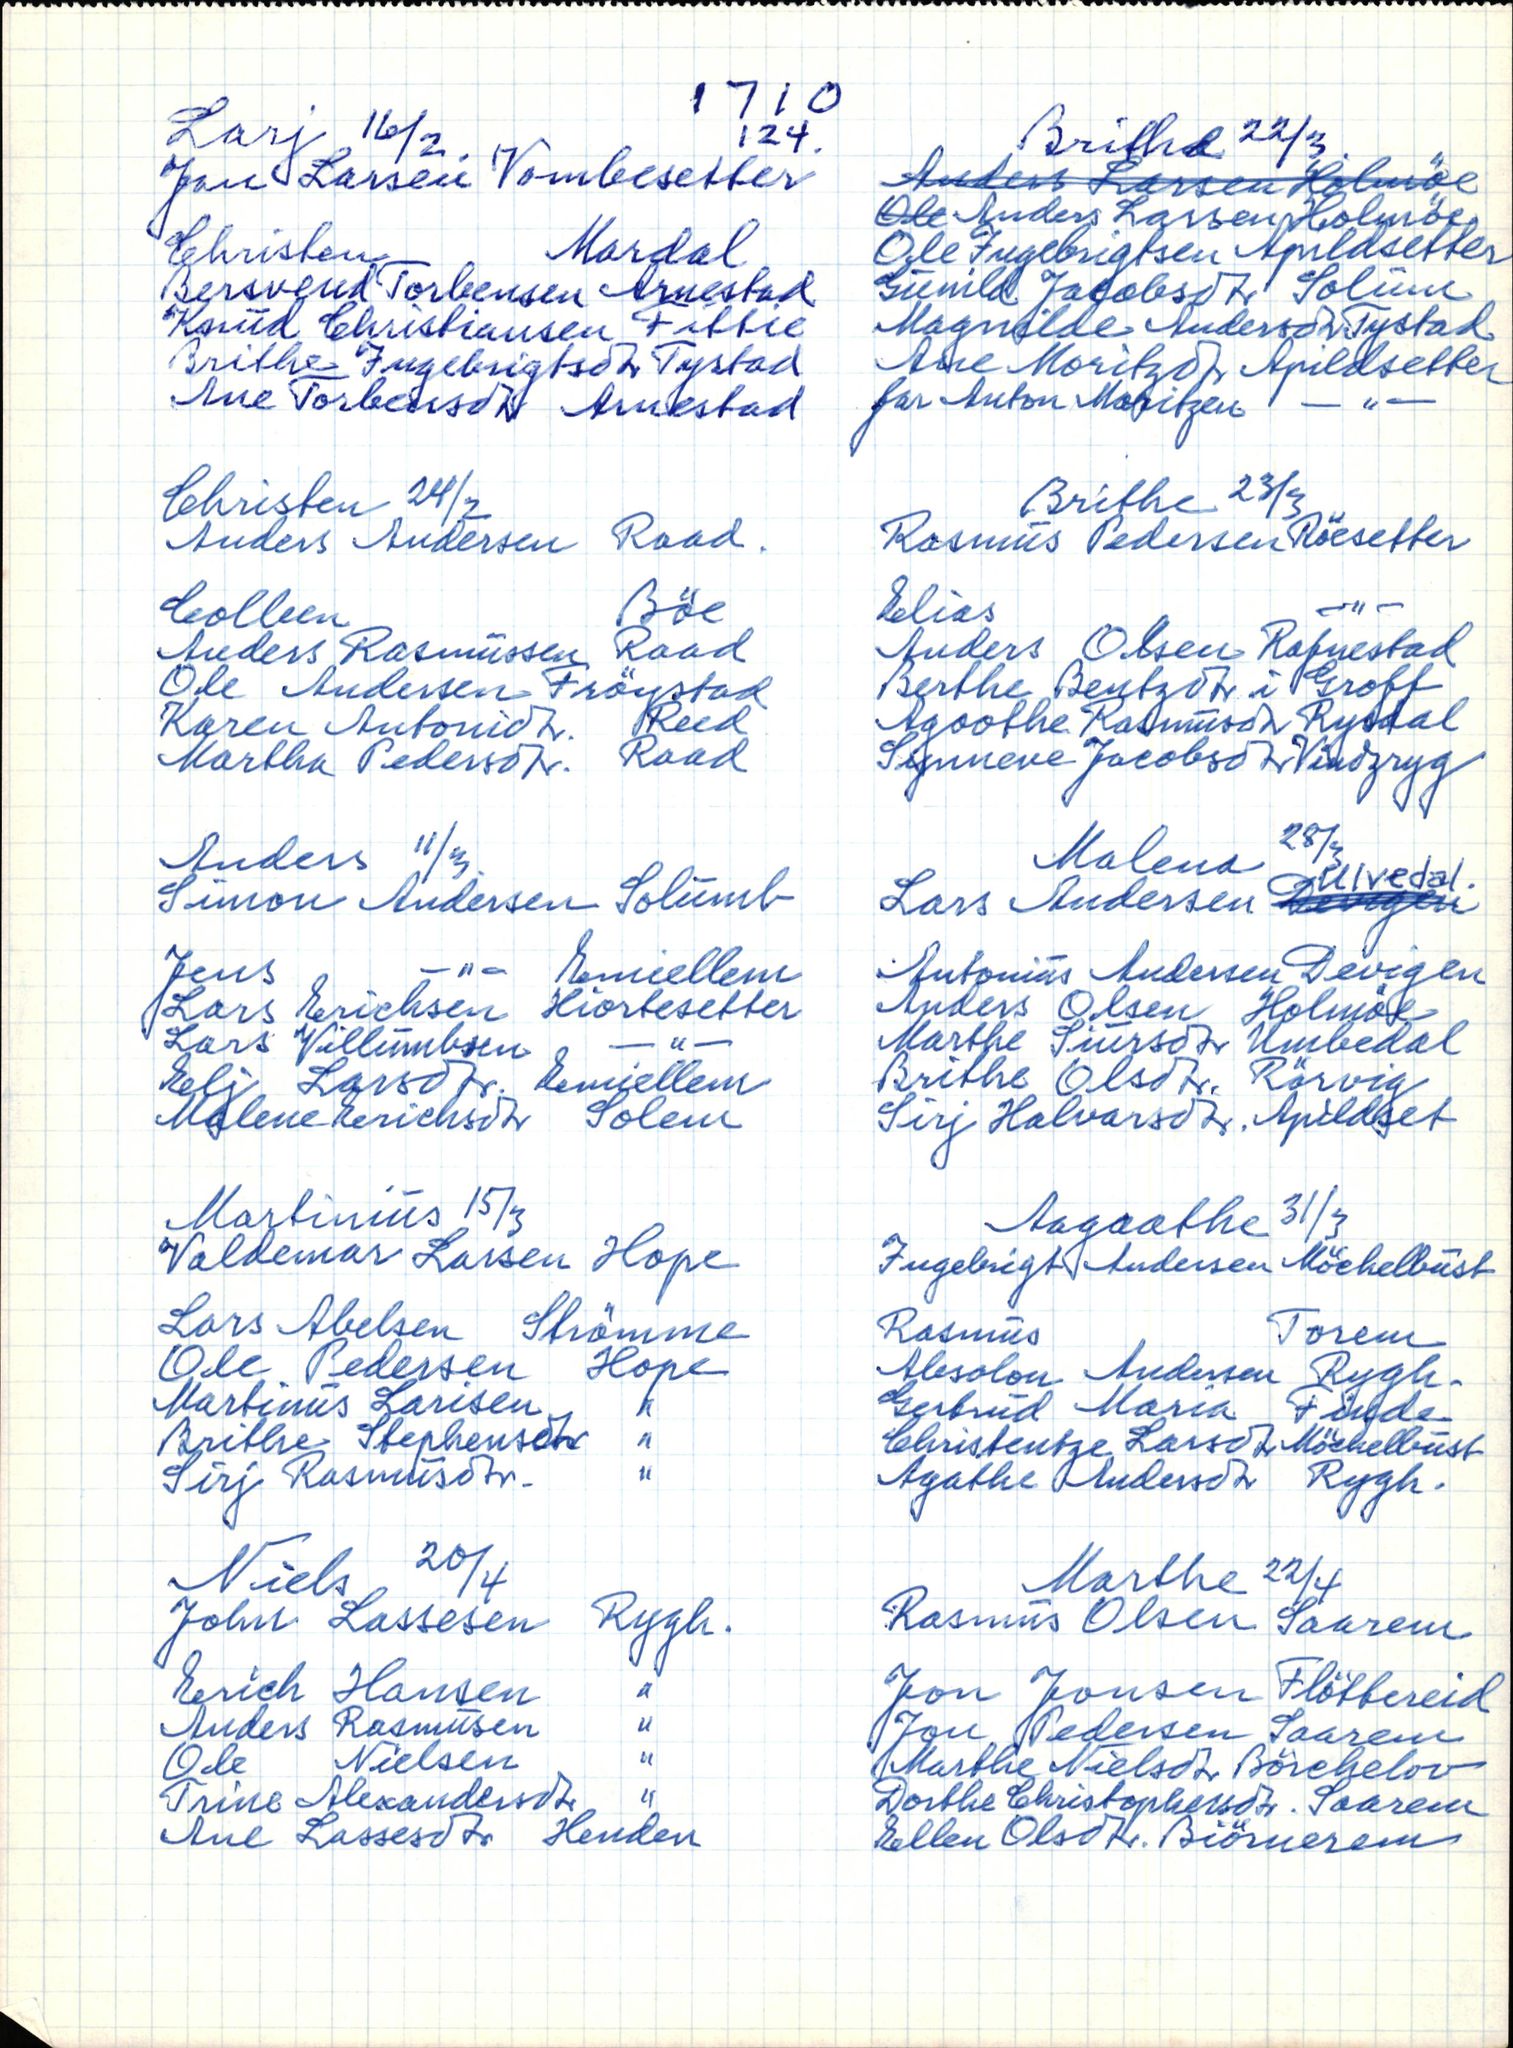 1710
124.
Larj 16/2.
Jon Larsen Vombesetter
Christen Mardal
Bersvend Torbensen Arnestad
Knüd Christiansen Fittie
Brithe Ingebrigtsdtr Tystad
Ane Torbensdtr Arnestad
Christen 24/2
Anders Andersen Raad.
Colleen Böe
Anders Rasmüssen Raad
Ole Andersen Fröystad
Karen Antonidtr. Reed
Martha Pedersdtr. Raad
Anders 11/3.
Simon Andersen Solümb
Jens —"— Eemiellem
Lars Erichsen Hiortesetter
Lars Villümbsen —"—
Elj Larsdtr. Eemiellem
Malene Erichsdtr Solem
Martiniüs 15/3
Valdemar Larsen Hope
Lars Abelsen Strömme
Ole Pedersen Hope
Martiniüs Larisen "
Brithe Stephensdtr "
Sirj Rasmüsdtr. "
Niels 20/4
John Lassesen Rygh.
Erich Hansen "
Anders Rasmüsen "
Ole Nielsen "
Trine Alexandersdtr "
Ane Lassesdtr Henden
Brithe 22/3.
Anders Larsen Holmöe
Ole Anders Larsen Holmöe
Ole Ingebrigtsen Apildsetter
Günild Jacobsdtr Solüm
Magnilde Andersdtr Tystad
Ane Moritzdtr Apildsetter
far Anton Moritzen —"—
Brithe 23/3
Rasmüs Pedersen Röesetter
Elias —"—
Anders Olsen Rafnestad
Berthe Bentzdtr i Groff
Agoothe Rasmüsdtr Rysdal
Synneve Jacobsdtr Vindzryg
Malena 28/3
Lars Andersen Devigen Ulvedal.
Antoniüs Andersen Devigen
Anders Olsen Holmöe
Marthe Siürsdtr Umbedal
Brithe Olsdtr. Rörvig
Sirj Halvarsdtr. Apildset
Aagaathe 31/3
Ingebrigt Andersen Möchelbüst
Rasmüs Torem
Absolon Andersen Rygh.
Gertrüd Maria Finde
Christentze Larsdtr Möchelbüst
Agathe Andersdtr Rygh.
Marthe 22/4
Rasmüs Olsen Saarem
Jon Jonsen Flöttereid
Jon Pedersen Saarem
Marthe Nielsdtr Börchelov
Dorthe Christophersdtr. Saarem
Ellen Olsdtr. Biörnerem